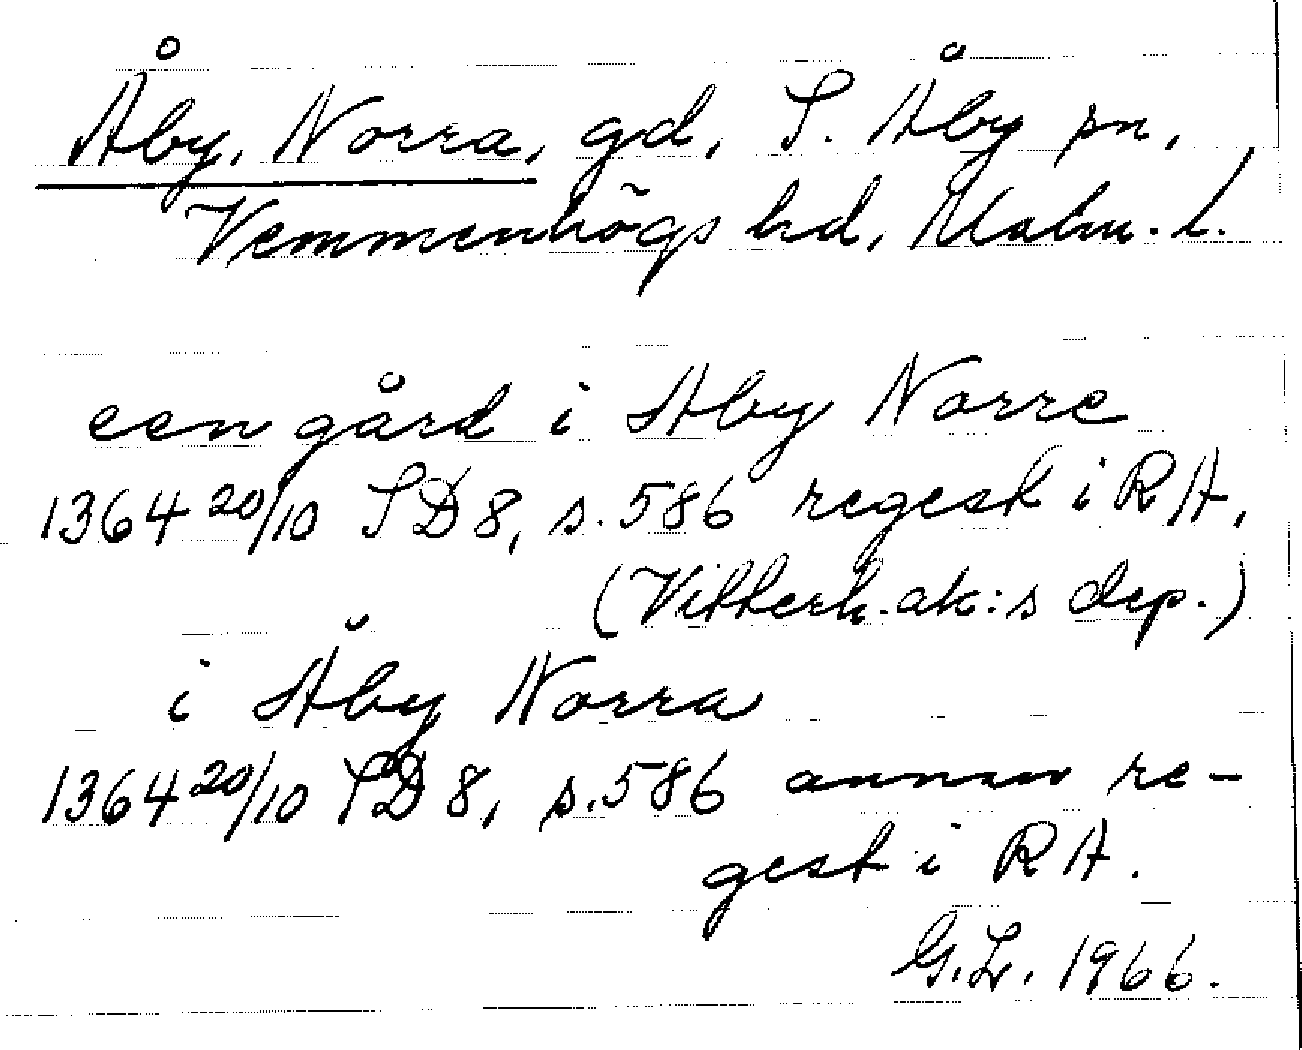 Åby, Norra, gd, S. Åby sn,
Vemmenhögs hd, Malm. l.
een gård i Aby Norre
1364 20/10 SD 8, s. 586 regest i RA,
(Vitterh.ak:s dep.)
i Åby Norra
1364 20/10 SD 8, s. 586 annan re-
gest i RA.
G.L. 1966.